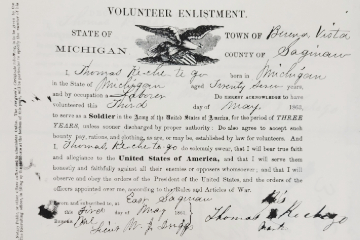 VOLUNTEER ENLISTMENT.
STATE OF
MICHIGAN
TOWN OF Buena Vista
COUNTY OF Saginaw
I, Thomas Ke-che-ti-go born in Michigan
in the State of Michigan aged Twenty
and by occupation a DO HEREBY ACKNOWLEDGE to have
volunteered this Third day of May 1863,
to serve as a Soldier in the Army of the United States of America, for the period of THREE
YEARS, unless sooner discharged by proper authority: Do also agree to accept such
bounty, pay, rations, and clothing, as are, or may be, established by law for volunteers. And
I Thomas Ke-che-ti-go do solemnly swear, that I will bear true faith
and allegiance to the United States of America, and that I will serve them
honestly and faithfully against all their enemies or opposers whomsoever; and that I will
observe and obey the orders of the President of the United States, and the orders of the
officers appointed over me, according to the Rules and Articles of War.
subscribed to, at East Saginaw
this First day of May 1863
his
Thomas
mark